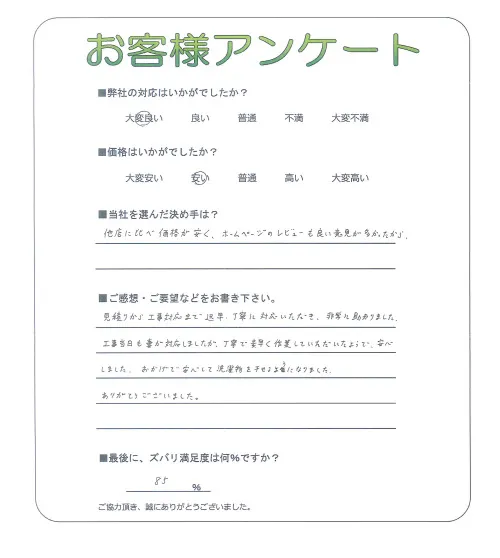 お客様アンケート
■弊社の対応はいかがでしたか？
大変良い 良い 普通 不満 大変不満
■価格はいかがでしたか？
大変安い 安い 普通 高い 大変高い
■当社を選んだ決め手は？
他店に比べ価格が安く、ホームページのレビューも良い意見が多かったから。
■ご感想・ご要望などをお書き下さい。
見積りから工事対応まで迅早、丁寧に対応いただき、非常に助かりました。
工事当日も妻が対応しましたが、丁寧で素早く作業していただいたようで、安心
しました。おかげで安心して洗濯物を干せるようになりました。
ありがとうございました。
■最後に、ズバリ満足度は何％ですか？
85 %
ご協力頂き、誠にありがとうございました。